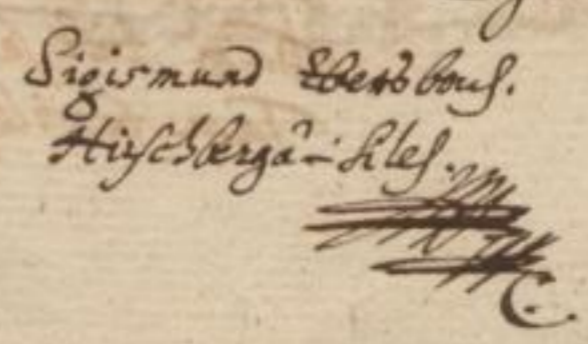 Sigismund Ebersbach.
Hirschbergâ-Siles.
C.